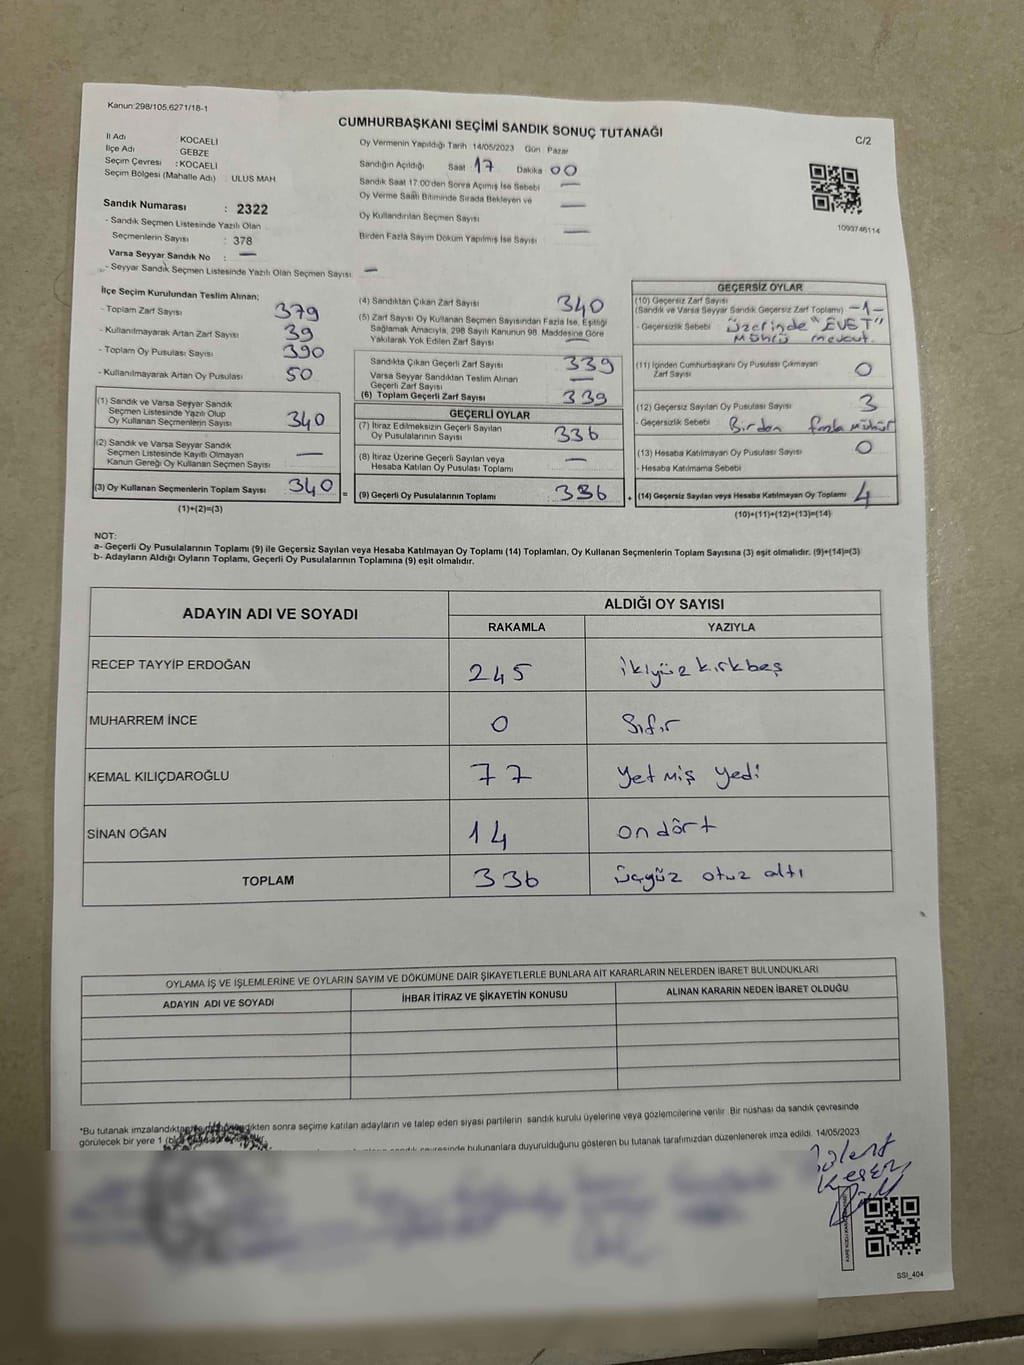 Kanun:298/105,6271/18-1
CUMHURBAŞKANI SEÇİMİ SANDIK SONUÇ TUTANAĞI
C/2
İl Adı KOCAELİ
İlçe Adı : GEBZE
Seçim Çevresi : KOCAELİ
Seçim Bölgesi (Mahalle Adı) : ULUS MAH.
Sandık Numarası : 2322
- Sandık Seçmen Listesinde Yazılı Olan
Seçmenlerin Sayısı : 378
Varsa Seyyar Sandık No : —
- Seyyar Sandık Seçmen Listesinde Yazılı Olan Seçmen Sayısı —
Oy Vermenin Yapıldığı Tarih 14/05/2023 Gün Pazar
Sandığın Açıldığı Saat 17 Dakika 00
Sandık Saat 17.00'den Sonra Açımış İse Sebebi —
Oy Verme Saati Bitiminde Sırada Bekleyen ve —
Oy Kullandırılan Seçmen Sayısı
Birden Fazla Sayım Döküm Yapılmış İse Sayısı —
1093746114
İlçe Seçim Kurulundan Teslim Alınan;
- Toplam Zarf Sayısı 379
- Kullanılmayarak Artan Zarf Sayısı 39
- Toplam Oy Pusulası Sayısı 390
- Kullanılmayarak Artan Oy Pusulası 50
(1) Sandık ve Varsa Seyyar Sandık
Seçmen Listesinde Yazılı Olup
Oy Kullanan Seçmenlerin Sayısı 340
(2) Sandık ve Varsa Seyyar Sandık
Seçmen Listesinde Kayıtlı Olmayan
Kanun Gereği Oy Kullanan Seçmen Sayısı —
(3) Oy Kullanan Seçmenlerin Toplam Sayısı 340 =
(1)+(2)=(3)
(4) Sandıktan Çıkan Zarf Sayısı 340
(5) Zarf Sayısı Oy Kullanan Seçmen Sayısından Fazla İse, Eşitliği
Sağlamak Amacıyla, 298 Sayılı Kanunun 98. Maddesine Göre
Yakılarak Yok Edilen Zarf Sayısı —
Sandıkta Çıkan Geçerli Zarf Sayısı 339
Varsa Seyyar Sandıktan Teslim Alınan
Geçerli Zarf Sayısı —
(6) Toplam Geçerli Zarf Sayısı 339
GEÇERLİ OYLAR
(7) İtiraz Edilmeksizin Geçerli Sayılan
Oy Pusulalarının Sayısı 336
(8) İtiraz Üzerine Geçerli Sayılan veya
Hesaba Katılan Oy Pusulası Toplamı —
(9) Geçerli Oy Pusulalarının Toplamı 336 +
GEÇERSİZ OYLAR
(10) Geçersiz Zarf Sayısı
(Sandık ve Varsa Seyyar Sandık Geçersiz Zarf Toplamı) -1-
- Geçersizlik Sebebi Üzerinde "EVET"
mührü mevcut.
(11) İçinden Cumhurbaşkanı Oy Pusulası Çıkmayan
Zarf Sayısı 0
(12) Geçersiz Sayılan Oy Pusulası Sayısı 3
- Geçersizlik Sebebi Birden fazla mühür
(13) Hesaba Katılmayan Oy Pusulası Sayısı 0
- Hesaba Katılmama Sebebi
(14) Geçersiz Sayılan veya Hesaba Katılmayan Oy Toplamı 4
(10)+(11)+(12)+(13)=(14)
NOT:
a- Geçerli Oy Pusulalarının Toplamı (9) ile Geçersiz Sayılan veya Hesaba Katılmayan Oy Toplamı (14) Toplamları, Oy Kullanan Seçmenlerin Toplam Sayısına (3) eşit olmalıdır. (9)+(14)=(3)
b- Adayların Aldığı Oyların Toplamı, Geçerli Oy Pusulalarının Toplamına (9) eşit olmalıdır.
ADAYIN ADI VE SOYADI ALDIĞI OY SAYISI
RAKAMLA YAZIYLA
RECEP TAYYİP ERDOĞAN 245 ikiyüz kırkbeş
MUHARREM İNCE 0 Sıfır
KEMAL KILIÇDAROĞLU 77 yetmiş yedi
SİNAN OĞAN 14 ondört
TOPLAM 336 üçyüz otuz altı
OYLAMA İŞ VE İŞLEMLERİNE VE OYLARIN SAYIM VE DÖKÜMÜNE DAİR ŞİKAYETLERLE BUNLARA AİT KARARLARIN NELERDEN İBARET BULUNDUKLARI
ADAYIN ADI VE SOYADI İHBAR İTİRAZ VE ŞİKAYETİN KONUSU ALINAN KARARIN NEDEN İBARET OLDUĞU
*Bu tutanak imzalandıktan sonra seçime katılan adayların ve talep eden siyasi partilerin sandık kurulu üyelerine veya gözlemcilerine verilir. Bir nüshası da sandık çevresinde
görülecek bir yere 1 (bir)
bulunanlara duyurulduğunu gösteren bu tutanak tarafımızdan düzenlenerek imza edildi. 14/05/2023
SSI_404